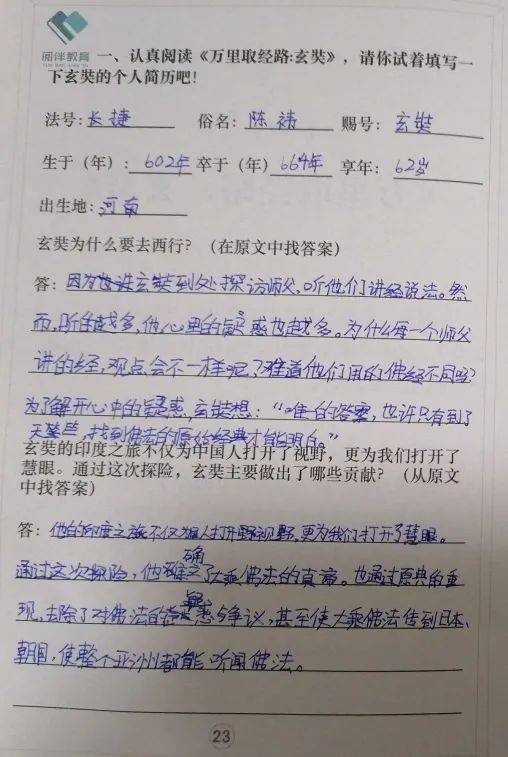 阅伴教育
一、认真阅读《万里取经路:玄奘》，请你试着填写一
下玄奘的个人简历吧!
法号:长捷 俗名:陈祎 赐号:玄奘
生于（年）:602年 卒于（年）664年 享年:62岁
出生地:河南
玄奘为什么要去西行?（在原文中找答案）
答:因为玄奘到处探访师父,听他们讲经说法。然
而,听得越多,他心里的疑惑也越多。为什么每一个师父
讲的经,观点会不一样呢?难道他们用的佛经不同吗?
为了解开心中的疑惑,玄奘想:“唯一的答案,也许只有到了
天竺,找到佛法的原始经典才能明白。”
玄奘的印度之旅不仅为中国人打开了视野，更为我们打开了
慧眼。通过这次探险，玄奘主要做出了哪些贡献?（从原文
中找答案）
答:他的印度之旅不仅为人打开视野,更为我们打开了慧眼。
通过这次探险,他确立了大乘佛法的真谛。也通过原典的重
现,去除了对佛法的疑惑与争议,甚至使大乘佛法传到日本、
朝国,使整个亚洲都能听闻佛法。
23